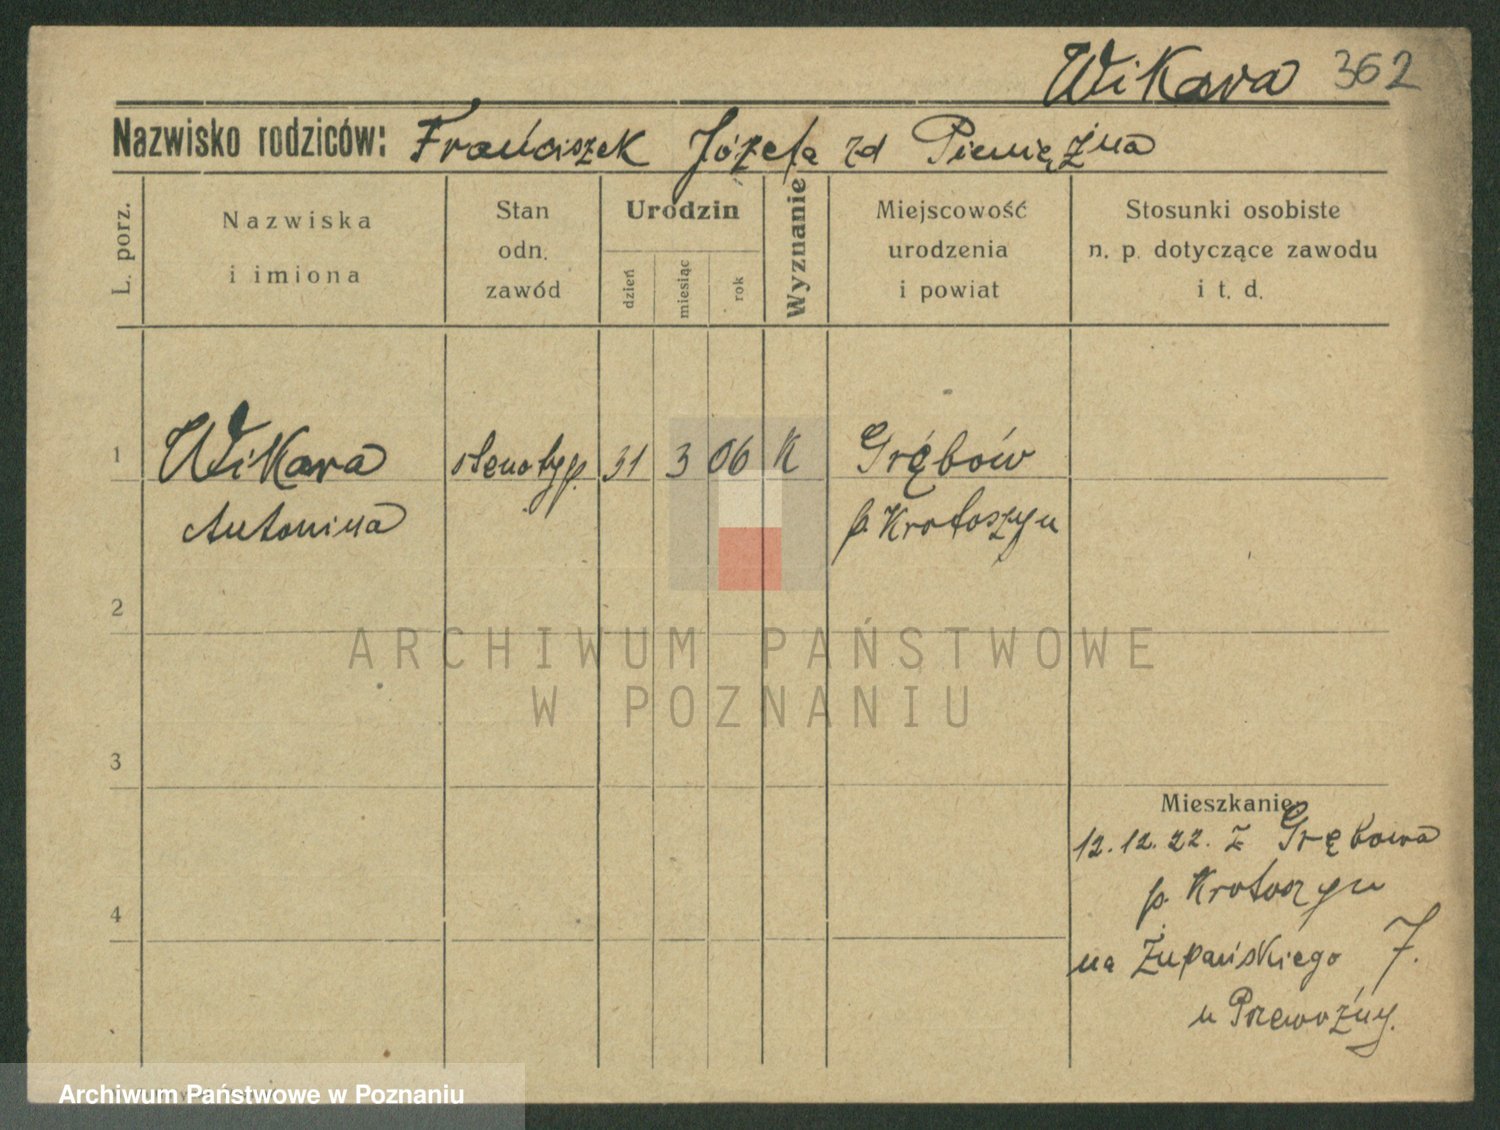 Wikara 362
Nazwisko rodziców: Franciszek Józefa zd Pieniężna
L. porz.
Nazwiska
i imiona
Stan
odn.
zawód
Urodzin
dzień
miesiąc
rok
Wyznanie
Miejscowość
urodzenia
i powiat
Stosunki osobiste
n. p. dotyczące zawodu
i t. d.
1 Wikara stenotyp. 31 3 06 K Grębów
Antonina p. Krotoszyn
2
ARCHIWUM PAŃSTWOWE
W POZNANIU
3
Mieszkanie
12.12.22. z Grębowa
p. Krotoszyn
4
na Żupańskiego 7.
u Przewoźny.
Archiwum Państwowe w Poznaniu